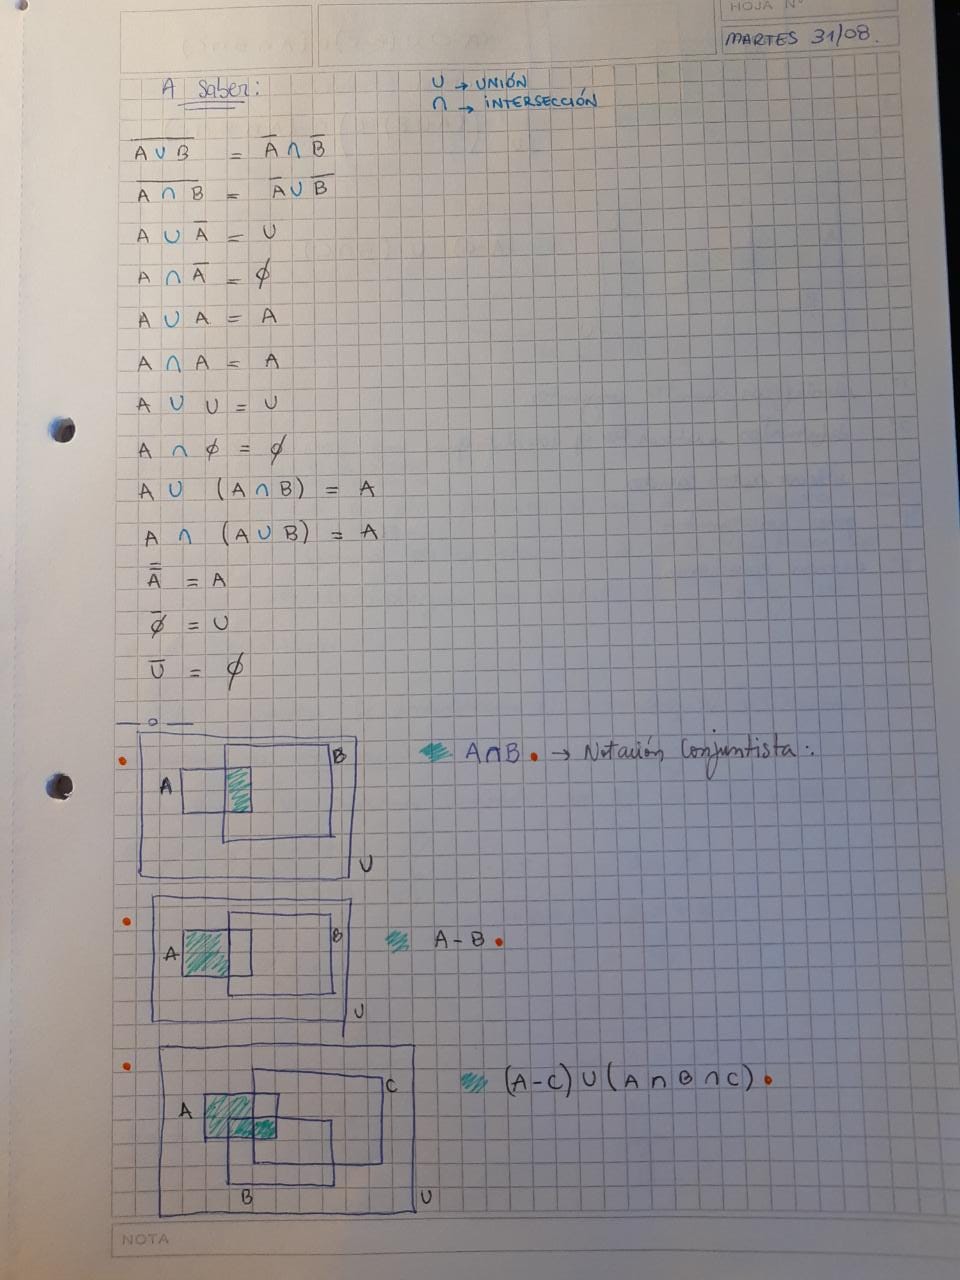 HOJA N°
MARTES 31/08.
A saber:
∪ → UNIÓN
∩ → INTERSECCIÓN
A̅ ̅∪̅ ̅B̅ = A̅ ∩ B̅
A̅ ̅∩̅ ̅B̅ = A̅ ∪ B̅
A ∪ A̅ = U
A ∩ A̅ = ϕ
A ∪ A = A
A ∩ A = A
A ∪ U = U
A ∩ ϕ = ϕ
A ∪ (A ∩ B) = A
A ∩ (A ∪ B) = A
A̿ = A
ϕ̅ = U
U̅ = ϕ
A B U
A∩B. → Notación Conjuntista:
A B U
A-B.
A B C U
(A-C) ∪ (A ∩ B ∩ C).
NOTA